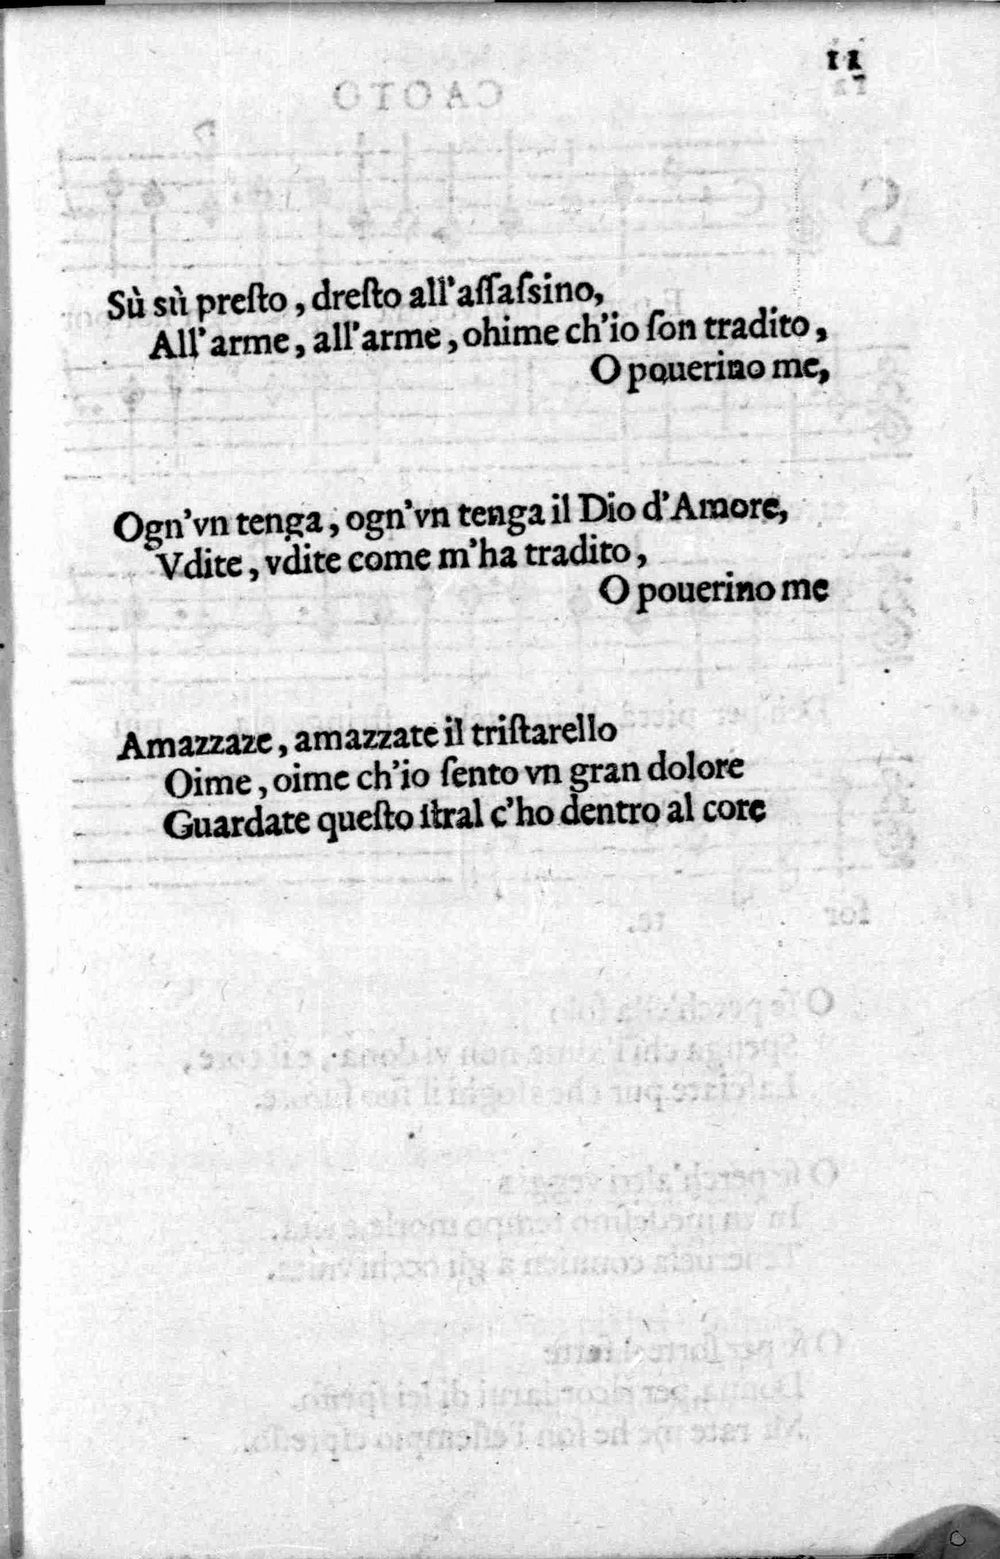 11
Sù sù preſto, dreſto all'aſſaſsino,
All'arme, all'arme, ohime ch'io ſon tradito,
O pouerino me,
Ogn'vn tenga, ogn'vn tenga il Dio d'Amore,
Vdite, vdite come m'ha tradito,
O pouerino me
Amazzaze, amazzate il triſtarello
Oime, oime ch'io ſento vn gran dolore
Guardate queſto ſtral c'ho dentro al core